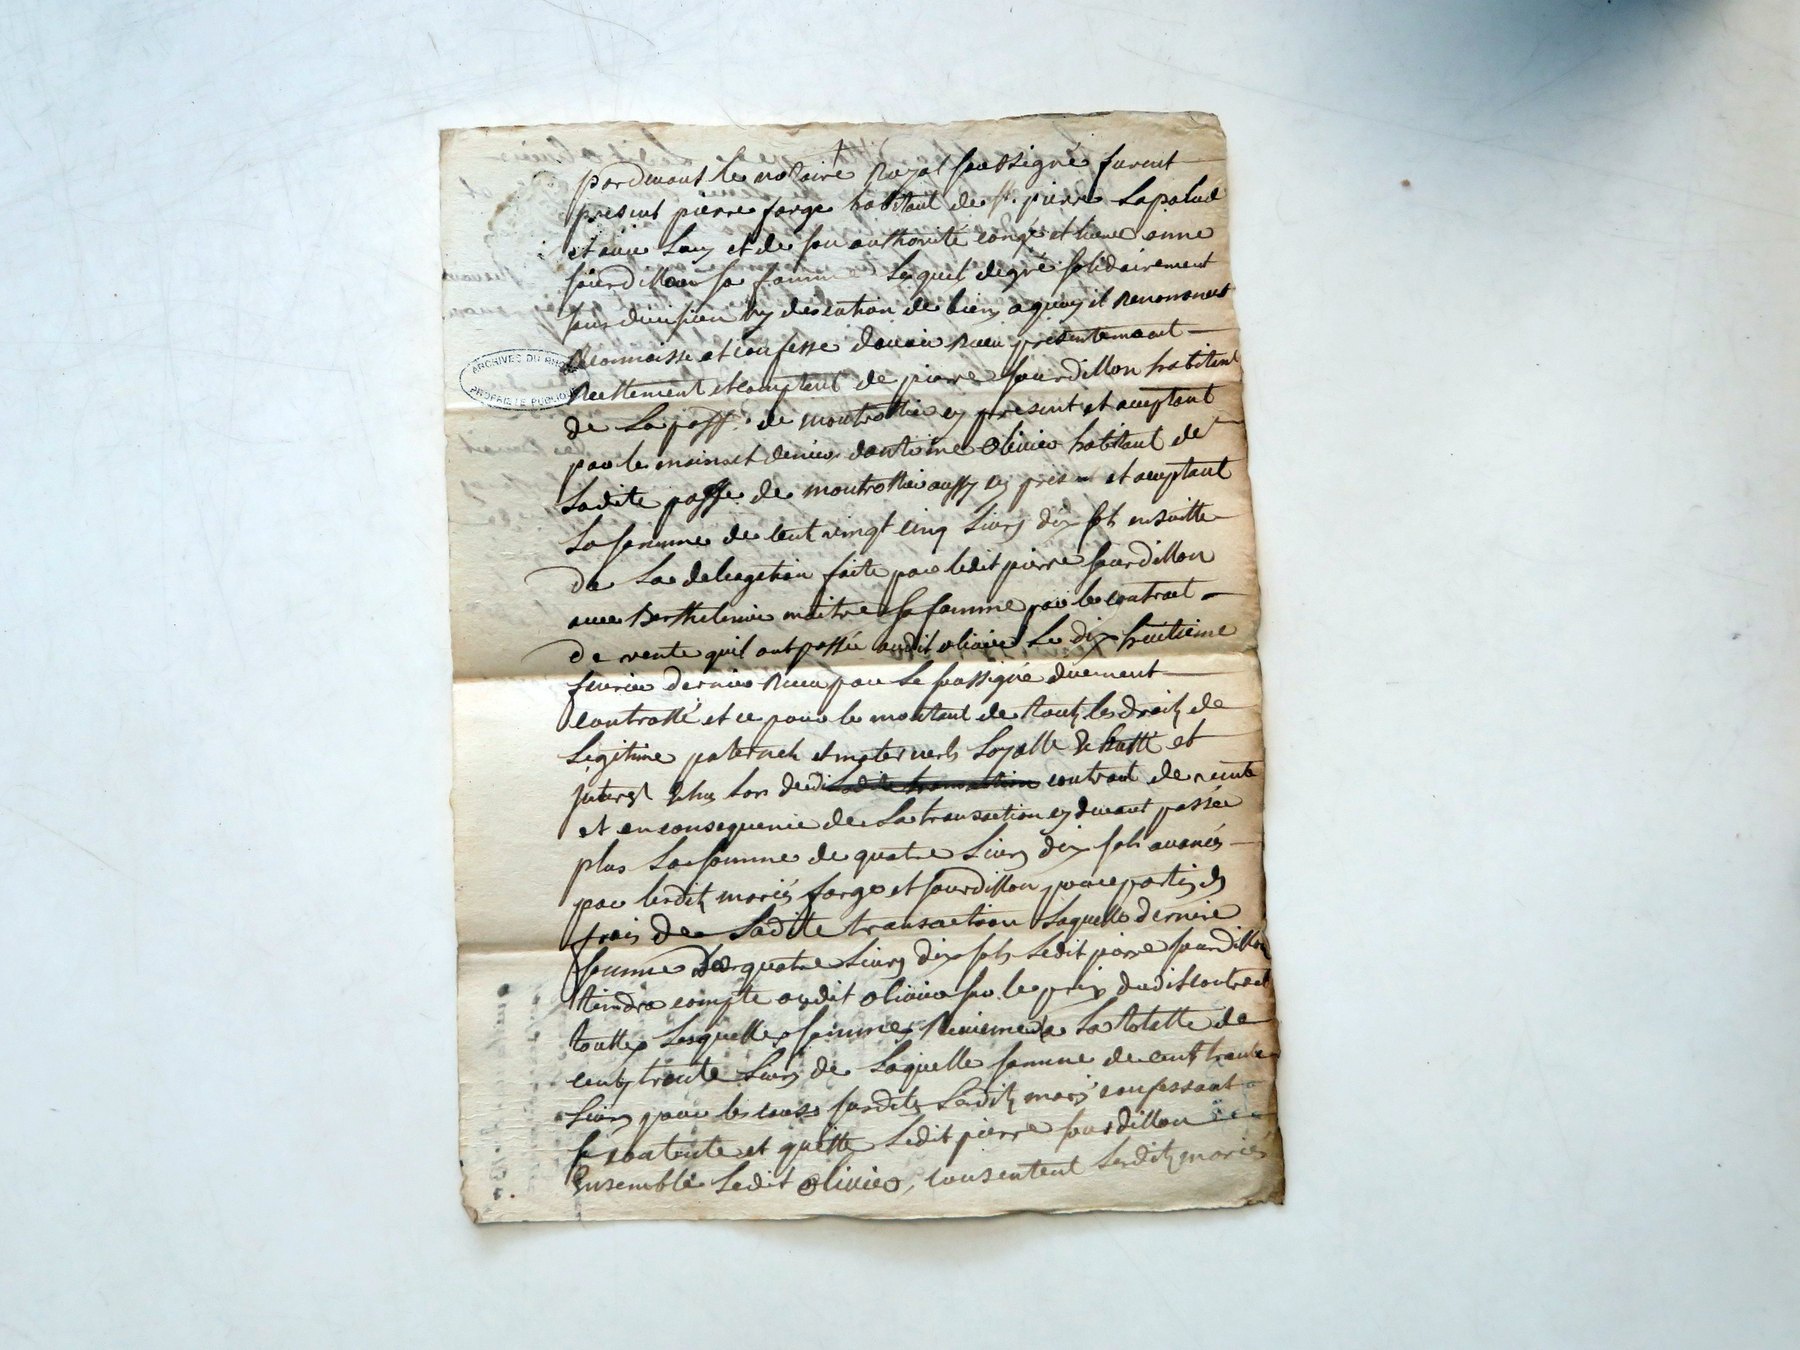 pardevant le notaire Royal soussigné furent
présent pierre farge habitant de st. pierre Lapalud
et avec Luy et de son authorité congé et licence anne
sourdillon sa famme Lequel degré solidairement
sans division ny discution de biens a quoy il Renonnent
Reconnaisse et confesse davoir Receu présentemant
Reellement et comptant de pierre sourdillon habitant
de La pass.e de montrottier cy présent et aceptant
par les mains et denier dantoine olivier habitant de
Ladite passe de montrottier aussy cy présent et aceptant
La somme de cent vingt cinq Livres dix sols ensuitte
de La delegation faite par ledit pierre sourdillon
avec Berthelemie maitre sa famme par le contract
de vente quil ont passée audit olivier Le dix huitieme
fevrier dernier Receu par Le soussigné duement
controllé et ce pour le montant de touts les droits de
Legitime paternels et maternels Layette
interest Echus lors dudit contract de vente
et en consequence de La transaction cy devant passée
plus La somme de quatre Livres dix sols avancés
par lesdits mariés farge et sourdillon pour partie des
frais de Ladite transaction Laquelle dernire
somme de quatre Livres dix sols Ledit pierre sourdillon
tiendra compte audit olivier sur le prix dudit contract
touttes Lesquelles sommes Reviennent a La totalle de
cent trente Livres de Laquelle somme de cent trante
Livres pour les causes susdites Lesdits mariés confessant
se contente et quitte Ledit pierre sourdillon
Ensemble Ledit olivier, consentent Lesdits mariés
ARCHIVES DU RHÔNE
PROPRIÉTÉ PUBLIQUE